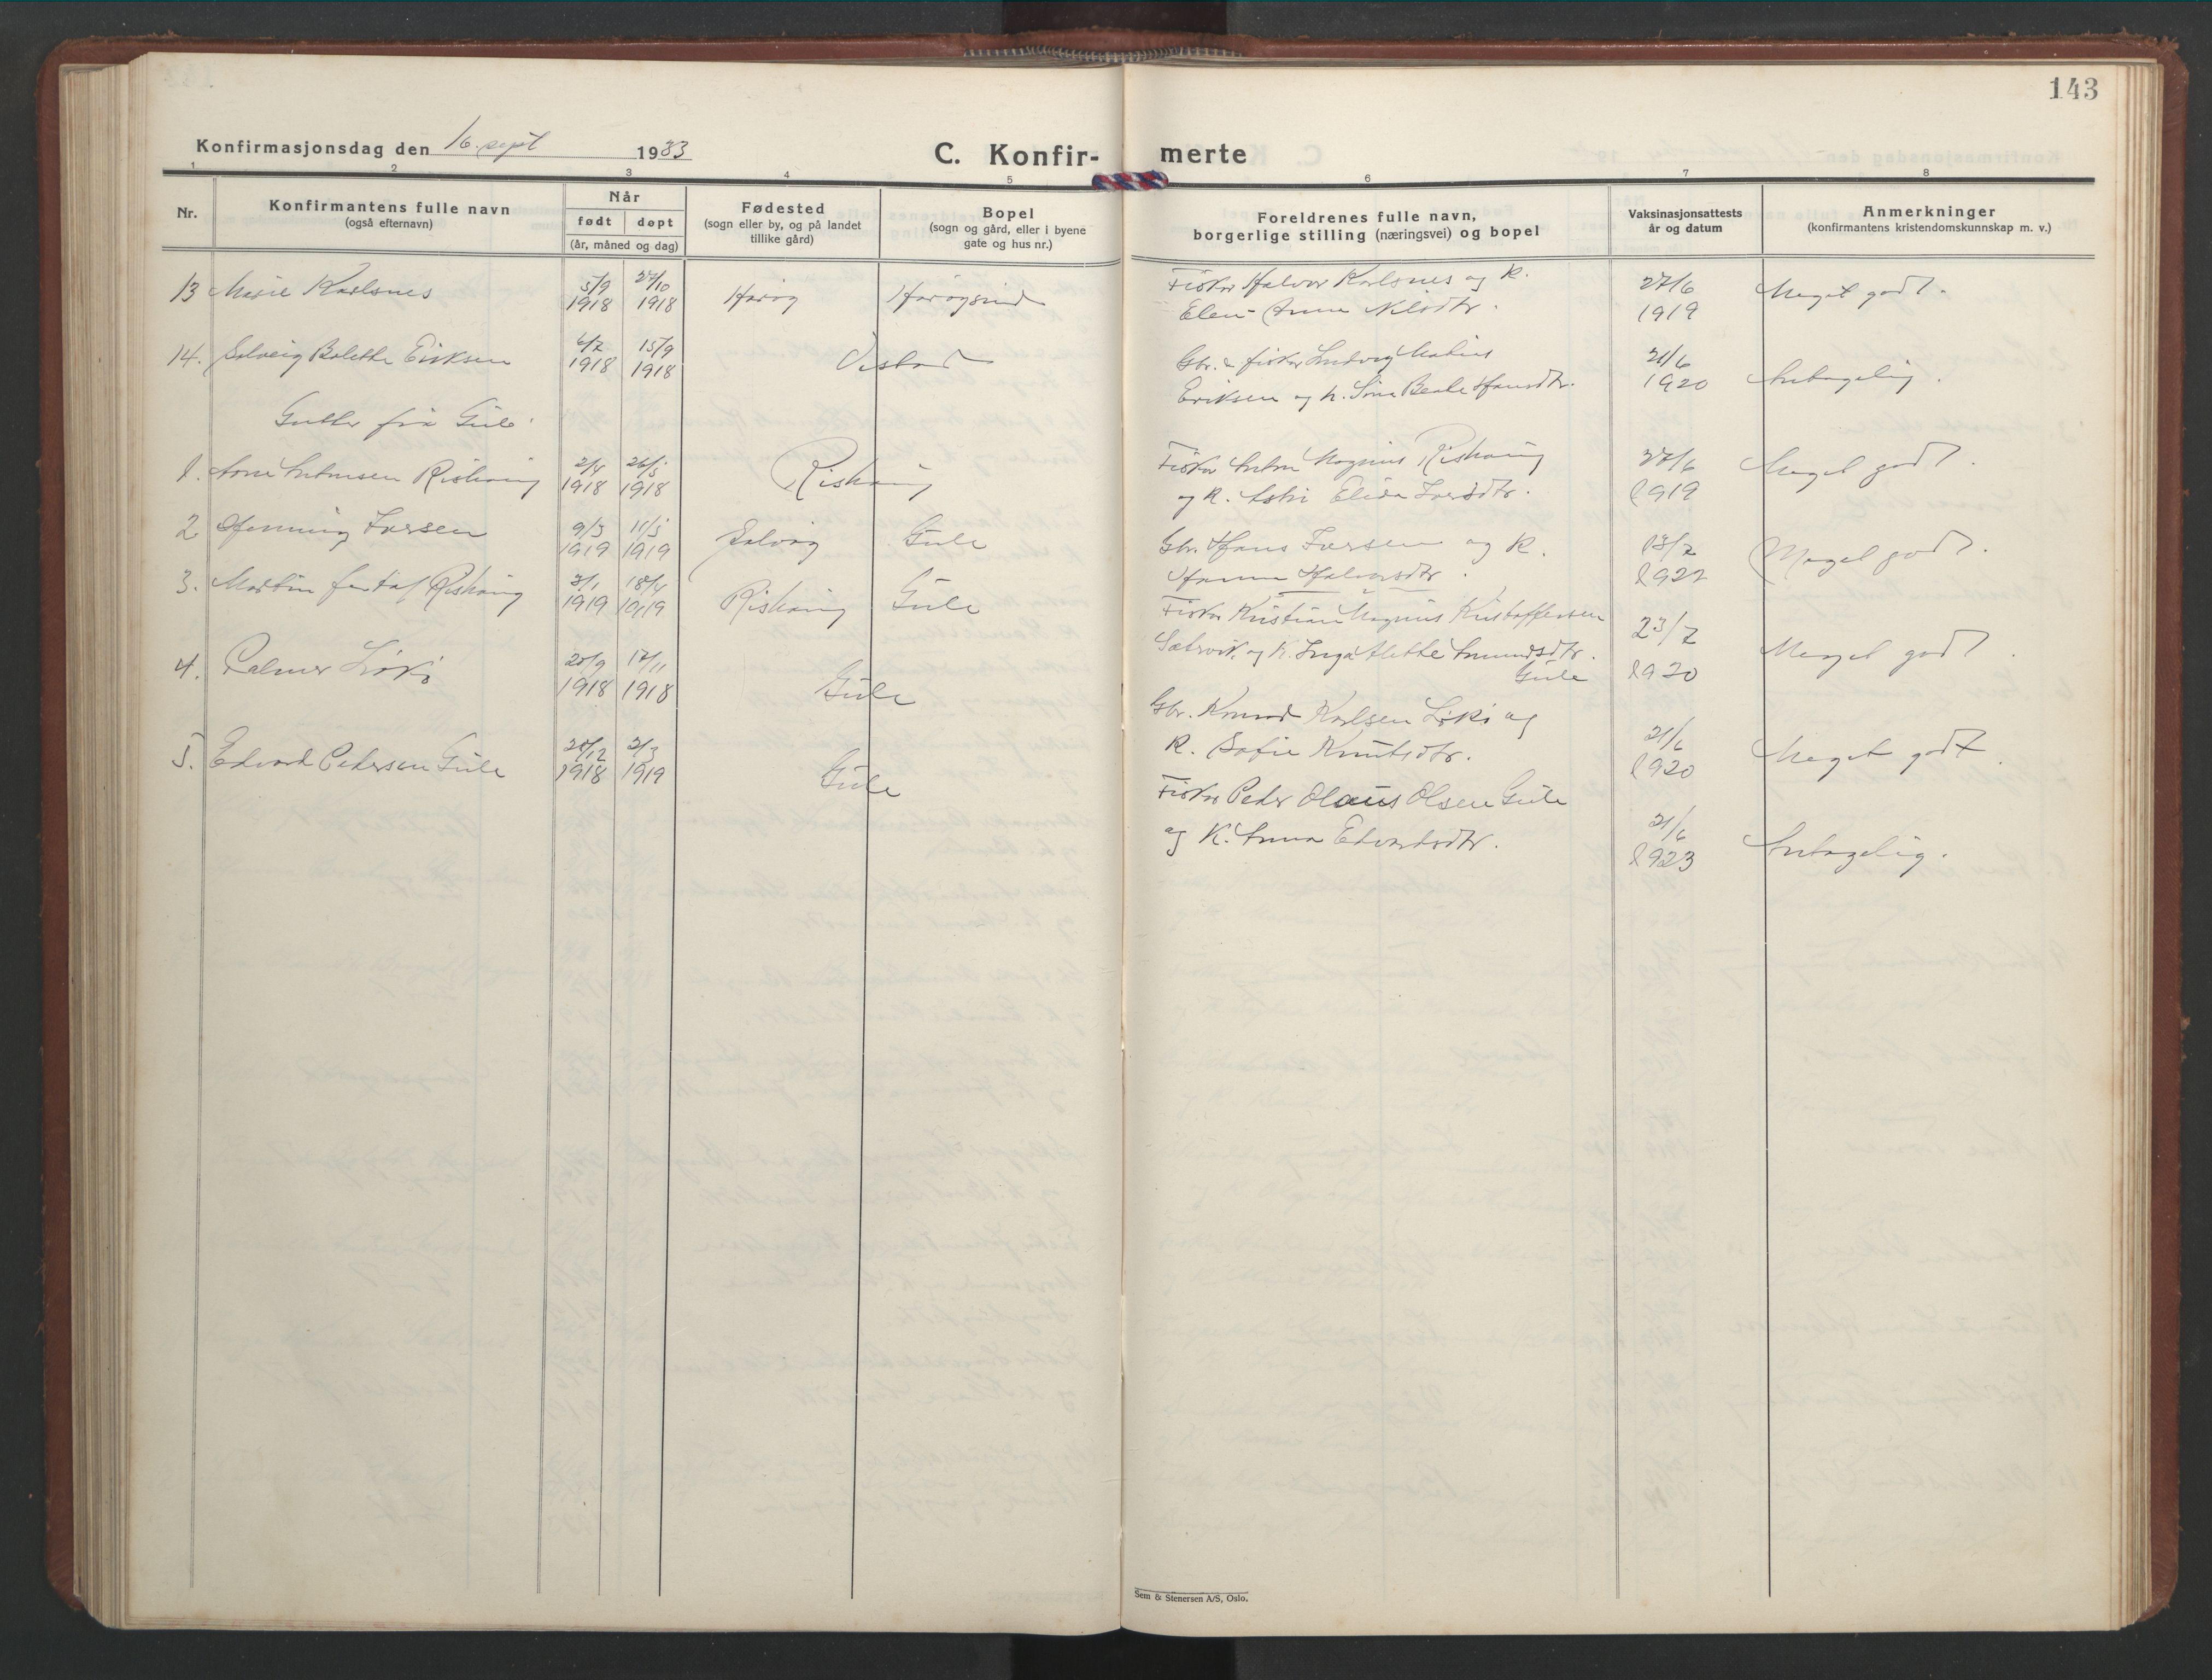 143
Konfirmasjonsdag den 16. sept 1933
C. Konfir- merte
1 2 3 4 5 6 7 8
Nr.
Konfirmantens fulle navn
(også efternavn)
Når
født døpt
(år, måned og dag)
Fødested
(sogn eller by, og på landet
tillike gård)
Bopel
(sogn og gård, eller i byene
gate og hus nr.)
Foreldrenes fulle navn,
borgerlige stilling (næringsvei) og bopel
Vaksinasjonsattests
år og datum
Anmerkninger
(konfirmantens kristendomskunnskap m. v.)
13 Marie Karlsnes 5/9 1918 27/10 1918 Harøy Harøysund
Fisker Halvor Karlsnes og K.
Elen Anna Nilsdtr.
27/6 1919 Meget godt.
14. Solveig Bolette Eriksen 6/7 1918 15/9 1918
Gbr. & fisker Ludvig
Eriksen og h. Beate Hansdtr.
21/6 1920 Antagelig.
Gutter fra Gule
1. Arne Antonsen Rishaug 2/4 1918 26/5 1918 Rishaug
Fisker Anton Magnus Rishaug
og K. Elida Iversdtr.
27/6 1919 Meget godt.
2 Henning Iversen 9/3 1919 11/5 1919 Solvåg Gule
Gbr. Hans Iversen og K.
Hanna Halvorsdtr.
13/7 Meget godt.
3. Martin Rishaug 3/1 1919 18/4 1919 Rishaug Gule
Fisker Kristian Magnus Kristoffersen
Sætervik og K. Inga Alette Amundsdtr.
Gule
23/7 1920 Meget godt.
4. Palmer Løki 20/9 1918 17/11 1918 Gule
Gbr. Konrad Karlsen Løki og
K. Sofie Knutsdtr.
21/6 1920 Meget godt.
5. Edvard Petersen Gule 20/12 1918 2/3 1919 Gule
Fisker Peder Olaus Olsen Gule
og K. Anna Edvardsdtr.
21/6 1923 Antagelig.
Sem & Stenersen A/S, Oslo.